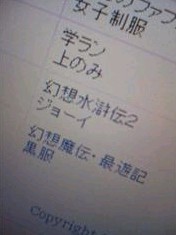 のファフ
女子制服
学ラン
上のみ
幻想水滸伝2
ジョーイ
幻想魔伝・最遊記
黒服
Copyright